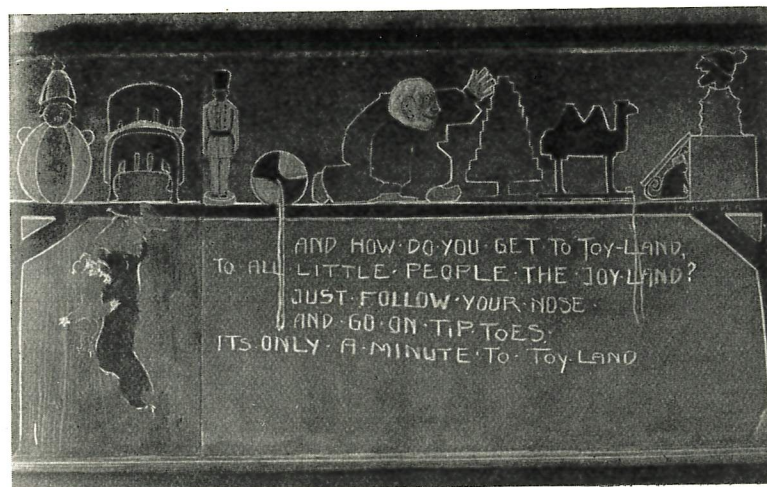 AND HOW·DO·YOU GET TO TOY-LAND,
TO ALL LITTLE·PEOPLE·THE JOY-LAND?
JUST·FOLLOW·YOUR·NOSE·
AND·GO·ON·TIP TOES.
ITS·ONLY·A·MINUTE·TO·TOY-LAND